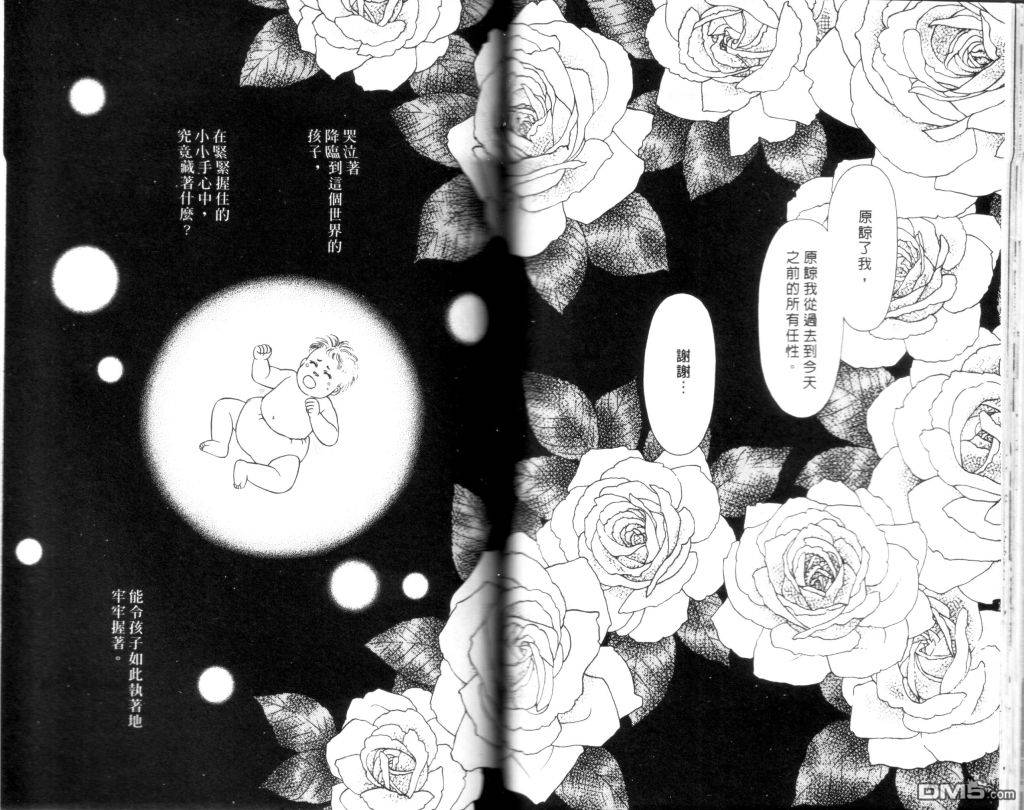 原諒了我，
原諒我從過去到今天
之前的所有任性。
謝謝…
哭泣著
降臨到這個世界的
孩子，
在緊緊握住的
小小手心中，
究竟藏著什麼？
能令孩子如此執著地
牢牢握著。
DM5.com